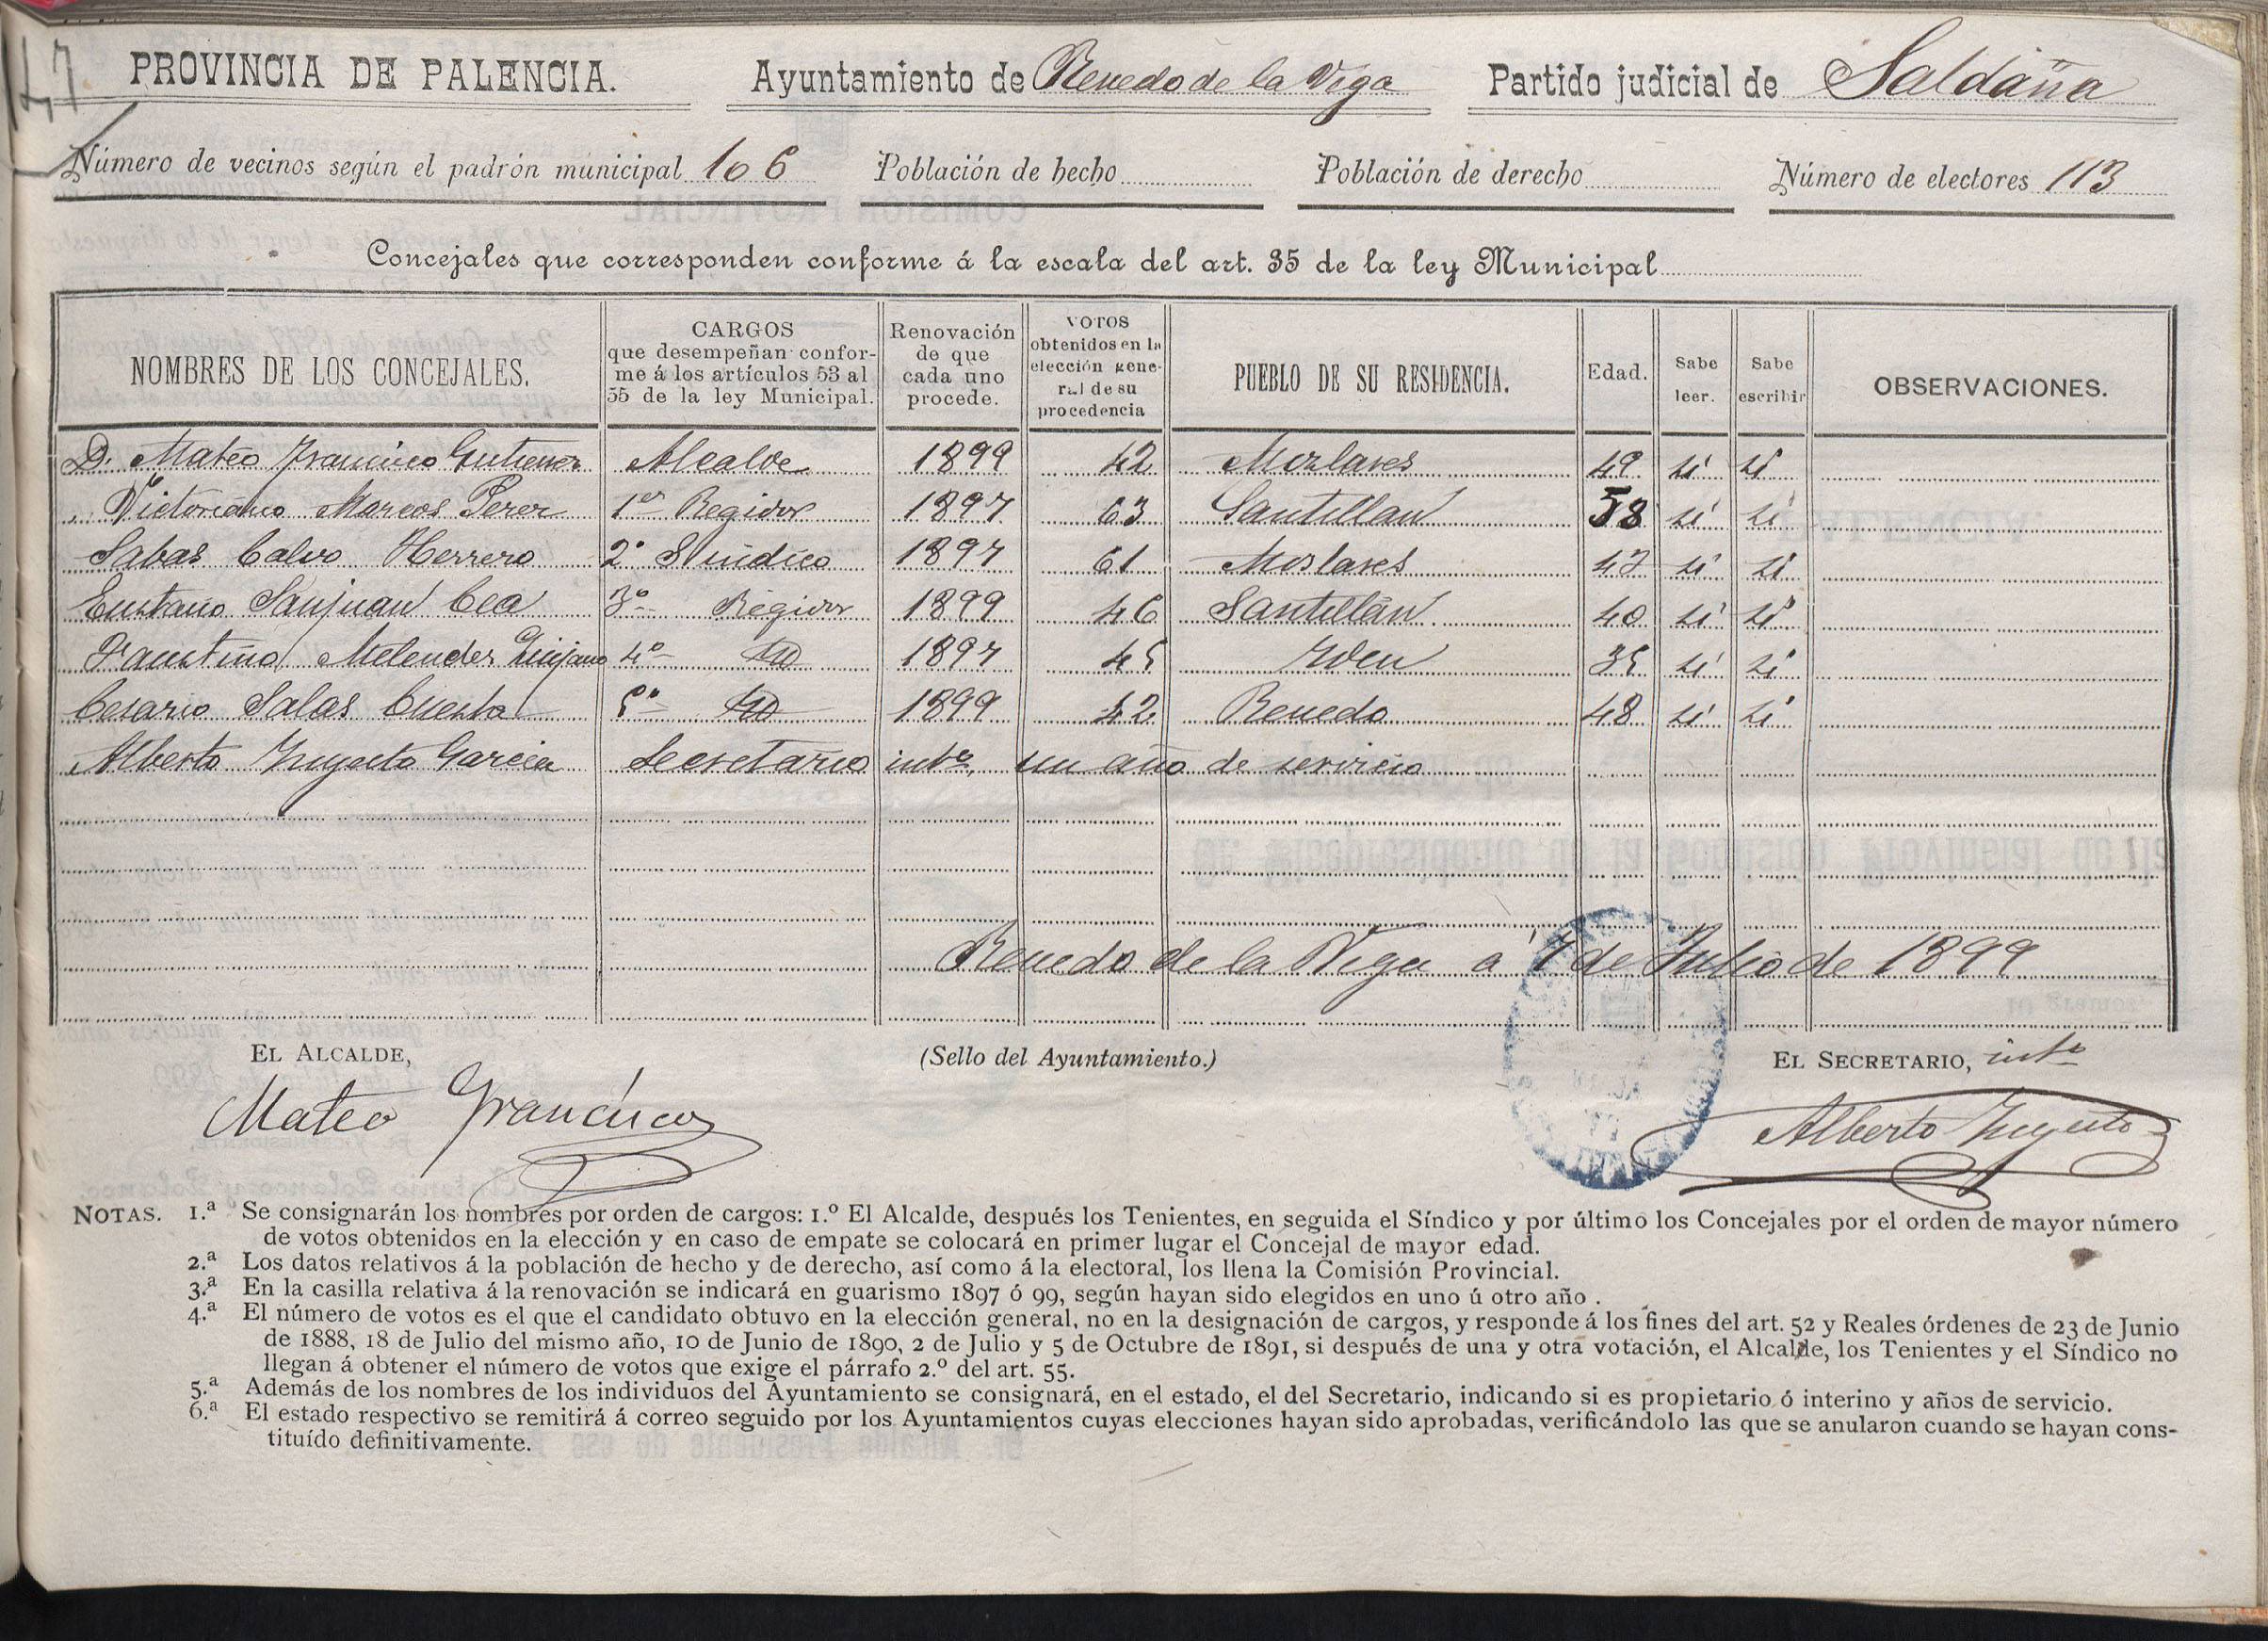 147
PROVINCIA DE PALENCIA. Ayuntamiento de Renedo de la Vega Partido judicial de Saldaña
Número de vecinos según el padrón municipal 106 Población de hecho Población de derecho Número de electores 113
Concejales que corresponden conforme á la escala del art. 35 de la ley Municipal
NOMBRES DE LOS CONCEJALES. CARGOS que desempeñan confor- me á los artículos 53 al 55 de la ley Municipal. Renovación de que cada uno procede. VOTOS obtenidos en la elección gene- ral de su procedencia PUEBLO DE SU RESIDENCIA. Edad. Sabe leer. Sabe escribir OBSERVACIONES.
D. Mateo Francisco Gutierrez Alcalde 1899 42 Moslares 49 si si
Victoriano Marcos Perez 1er Regidor 1897 63 Santillan 58 si si
Sabas Calvo Herrero 2º Sindico 1897 61 Moslares 47 si si
Eustasio Sanjuan Cea 3º Regidor 1899 46 Santillán 40 si si
Faustino Melendez Quijano 4º id 1897 45 Idem 35 si si
Cesario Salas Cuesta 5º id 1899 42 Renedo 48 si si
Alberto Garcia Secretario intº un año de servicio
Renedo de la Vega a 7 de Julio de 1899
EL ALCALDE, (Sello del Ayuntamiento.) EL SECRETARIO, intº
Mateo Francisco Alberto
NOTAS. 1.ª Se consignarán los nombres por orden de cargos: 1.º El Alcalde, después los Tenientes, en seguida el Síndico y por último los Concejales por el orden de mayor número
de votos obtenidos en la elección y en caso de empate se colocará en primer lugar el Concejal de mayor edad.
2.ª Los datos relativos á la población de hecho y de derecho, así como á la electoral, los llena la Comisión Provincial.
3.ª En la casilla relativa á la renovación se indicará en guarismo 1897 ó 99, según hayan sido elegidos en uno ú otro año .
4.ª El número de votos es el que el candidato obtuvo en la elección general, no en la designación de cargos, y responde á los fines del art. 52 y Reales órdenes de 23 de Junio
de 1888, 18 de Julio del mismo año, 10 de Junio de 1890, 2 de Julio y 5 de Octubre de 1891, si después de una y otra votación, el Alcalde, los Tenientes y el Síndico no
llegan á obtener el número de votos que exige el párrafo 2.º del art. 55.
5.ª Además de los nombres de los individuos del Ayuntamiento se consignará, en el estado, el del Secretario, indicando si es propietario ó interino y años de servicio.
6.ª El estado respectivo se remitirá á correo seguido por los Ayuntamientos cuyas elecciones hayan sido aprobadas, verificándolo las que se anularon cuando se hayan cons-
tituído definitivamente.